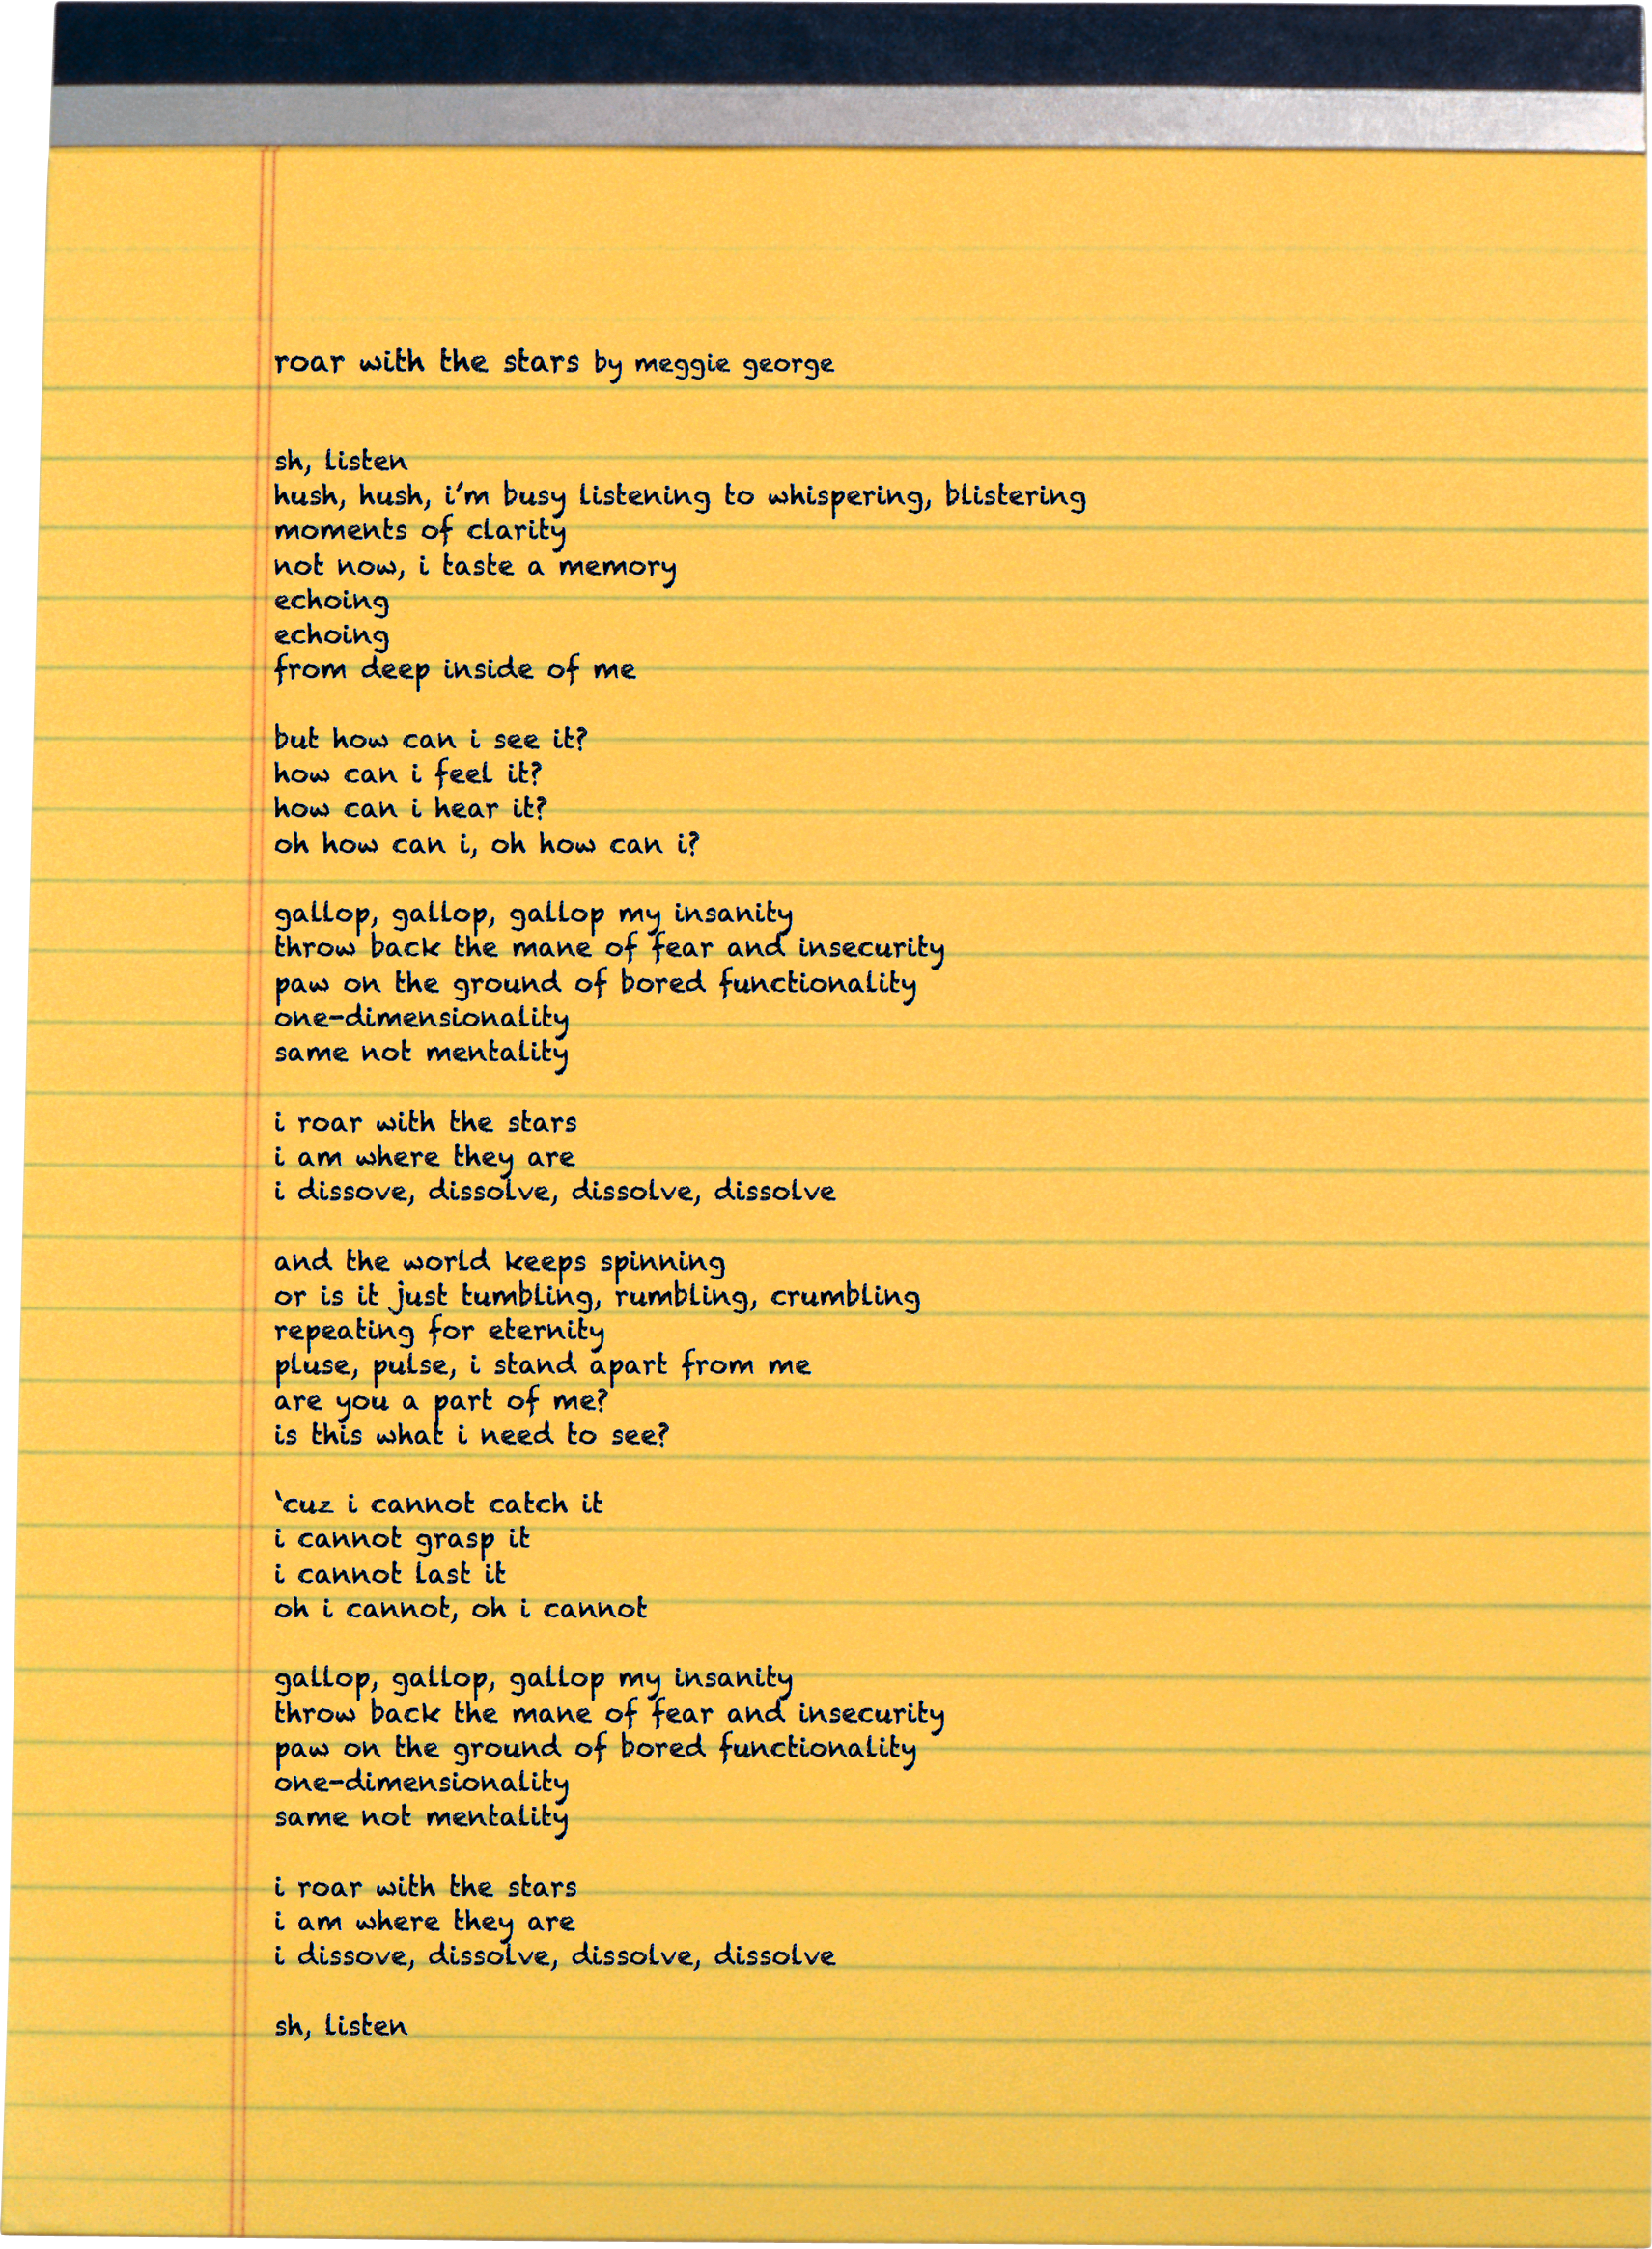 roar with the stars by meggie george
sh, listen
hush, hush, i'm busy listening to whispering, blistering
moments of clarity
not now, i taste a memory
echoing
echoing
from deep inside of me
but how can i see it?
how can i feel it?
how can i hear it?
oh how can i, oh how can i?
gallop, gallop, gallop my insanity
throw back the mane of fear and insecurity
paw on the ground of bored functionality
one-dimensionality
same not mentality
i roar with the stars
i am where they are
i dissove, dissolve, dissolve, dissolve
and the world keeps spinning
or is it just tumbling, rumbling, crumbling
repeating for eternity
pluse, pulse, i stand apart from me
are you a part of me?
is this what i need to see?
‛cuz i cannot catch it
i cannot grasp it
i cannot last it
oh i cannot, oh i cannot
gallop, gallop, gallop my insanity
throw back the mane of fear and insecurity
paw on the ground of bored functionality
one-dimensionality
same not mentality
i roar with the stars
i am where they are
i dissove, dissolve, dissolve, dissolve
sh, listen